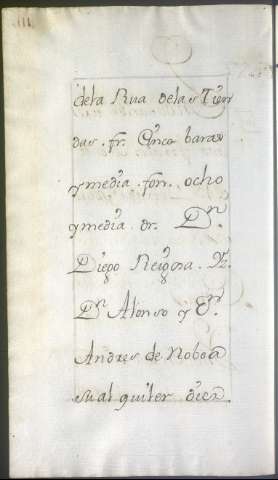 dela Rua delas Tien
das. fr. Cinco baras
y media. fon. ocho
y media. dr. Dn.
Diego Reigosa. Yz.
Dn Alonso y Dn.
Andres de Noboa
su alquiler diez